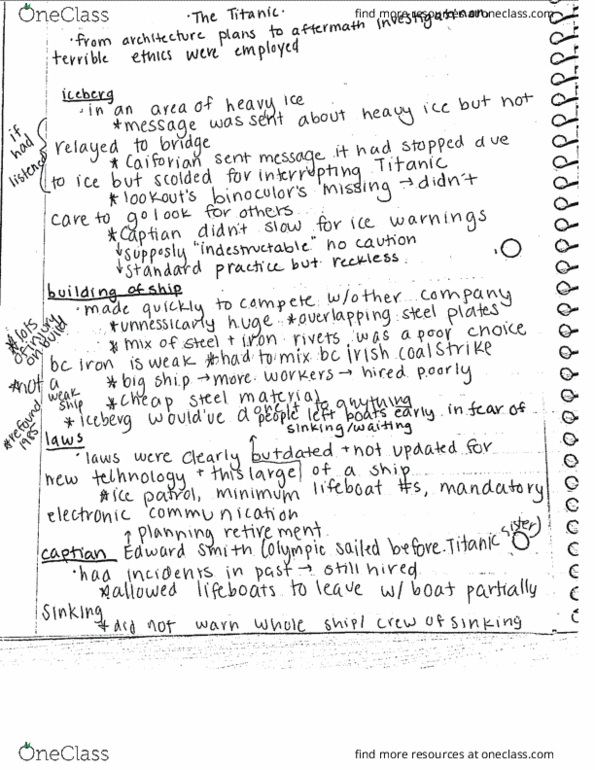 OneClass
find more resources at oneclass.com
·The Titanic·
·from architecture plans to aftermath investigation
terrible ethics were employed
iceberg
·in an area of heavy ice
*message was sent about heavy ice but not
relayed to bridge
if had listened
*Caiforian sent message it had stopped due
to ice but scolded for interrupting Titanic
*lookout's binoculor's missing → didn't
care to go look for others
*Captian didn't slow for ice warnings
↓supposly "indestructable" no caution
↓standard practice but reckless
building of ship
·made quickly to compete w/other company
*unnessicarly huge *overlapping steel plates
*lots of injury on build
* mix of steel + iron rivets was a poor choice
bc iron is weak *had to mix bc irish coal strike
*not a weak ship
*big ship → more workers → hired poorly
*cheap steel material
*refound 1985
*iceberg would've done it to anything
people left boats early in fear of
sinking/waiting
laws
·laws were clearly outdated + not updated for
new technology + this large of a ship
*ice patrol, minimum lifeboat #s, mandatory
electronic communication
↑planning retirement
captian Edward Smith (Olympic sailed before Titanic sister)
·had incidents in past → still hired
*allowed lifeboats to leave w/ boat partially
sinking
*did not warn whole ship/crew of sinking
OneClass
find more resources at oneclass.com